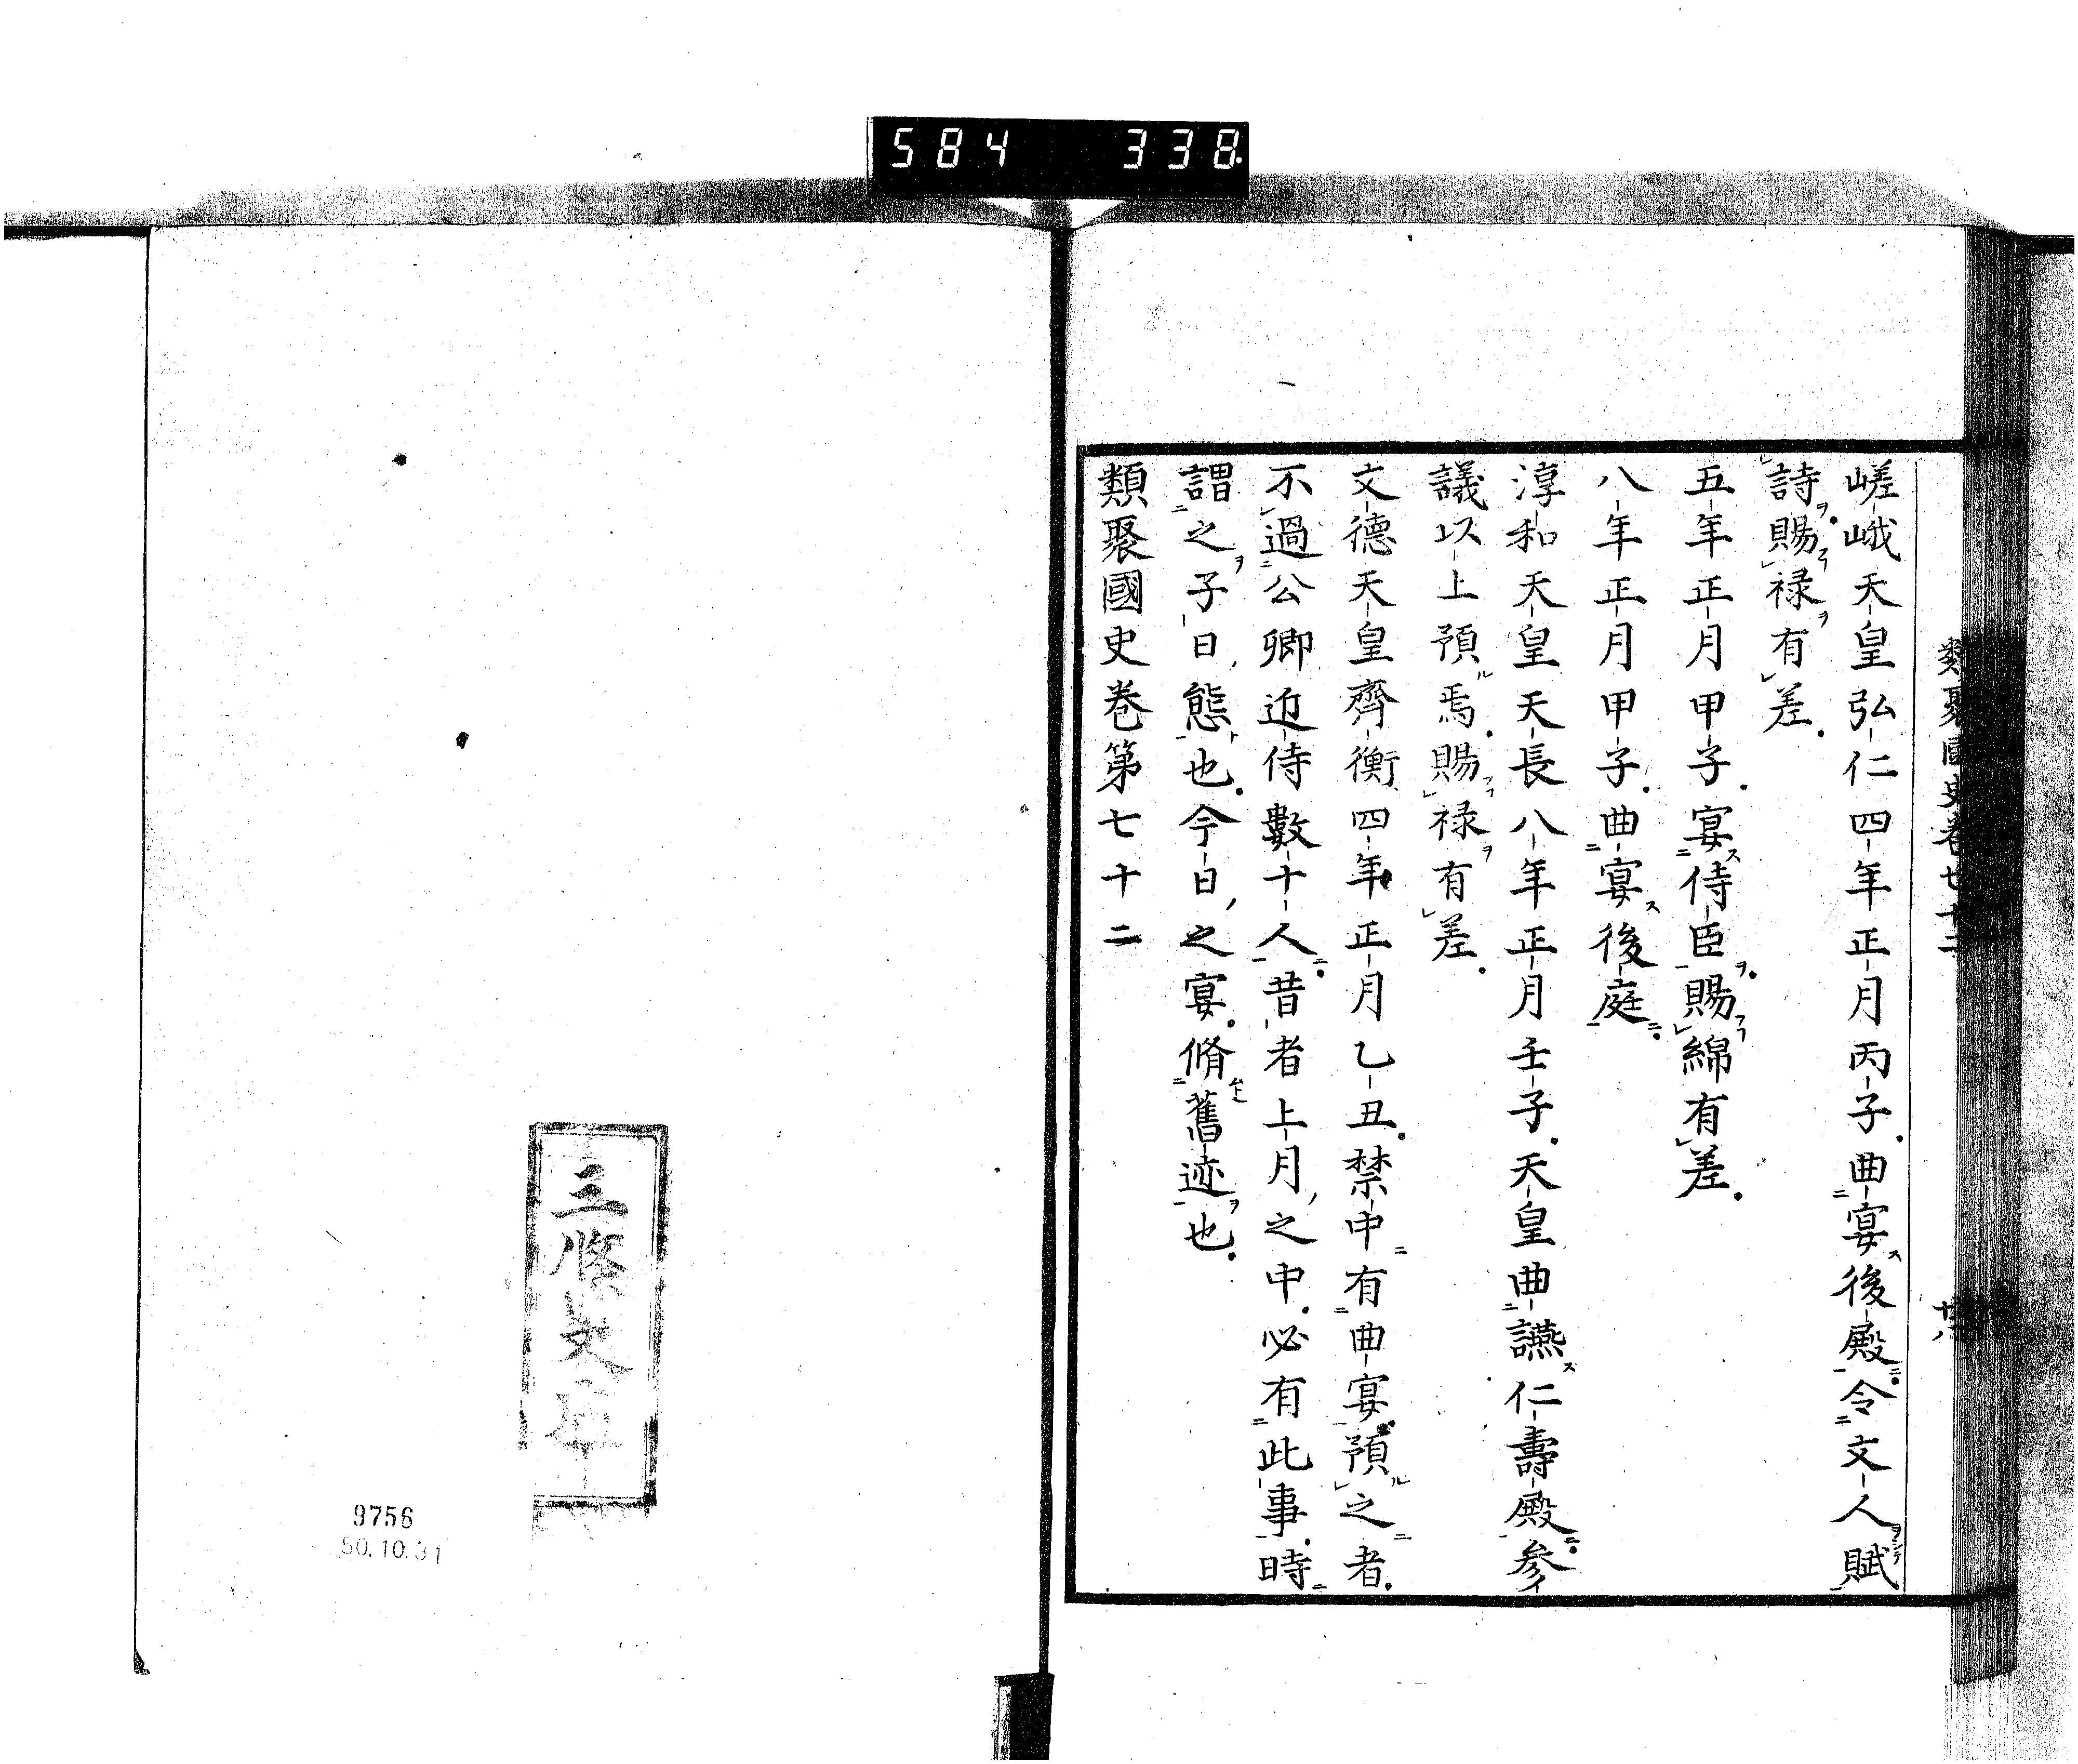 584 338
類聚國史卷七十二
廿八
嵯峨天皇弘仁四年正月丙子曲宴後殿令文人賦
詩賜禄有差
五年正月甲子宴侍臣賜綿有差
八年正月甲子曲宴後庭
淳和天皇天長八年正月壬子天皇曲讌仁壽殿参
議以上預焉賜禄有差
文德天皇齊衡四年正月乙丑禁中有曲宴預之者
不過公卿近侍數十人昔者上月之中必有此事時
謂之子日態也今日之宴脩舊迹也
類聚國史巻第七十二
9756
50.10.31